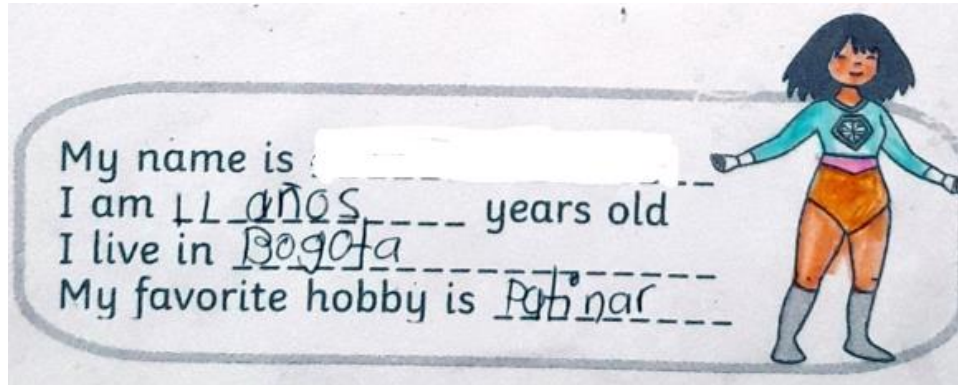 My name is
I am 11 años years old
I live in Bogota
My favorite hobby is Patinar